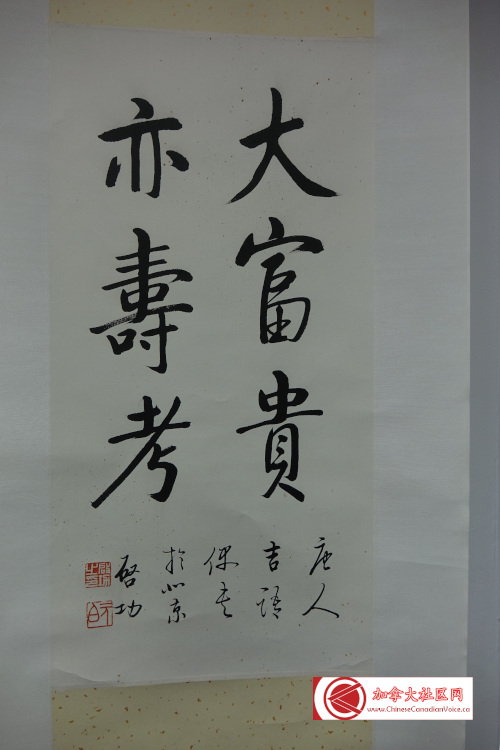 大富貴
亦壽考
唐人
吉語
於北京
啓功
加拿大社区网
www.ChineseCanadianVoice.ca